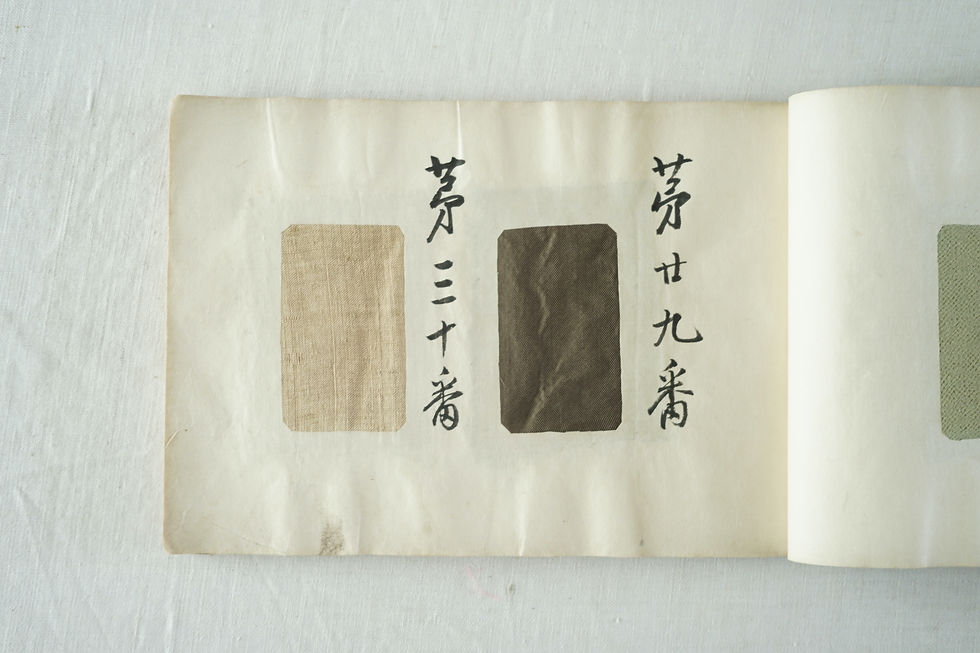 第廿九番
第三十番